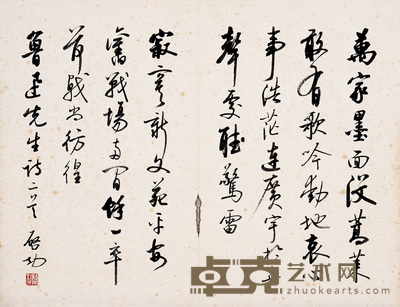 萬家墨面没蒿萊
敢有歌吟動地哀心
事浩茫連廣宇於無
聲處聽驚雷
寂寞新文苑平安
舊戰場兩間餘一卒
荷戟尚彷徨
魯迅先生詩二首 啟功
卓克艺术网
zhuokearts.com